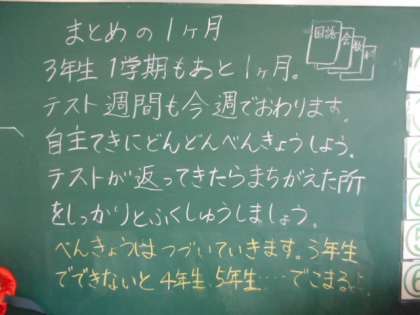 まとめの1ヶ月
3年生 1学期もあと1ヶ月。
テスト週間も今週でおわります。
自主てきにどんどんべんきょうしよう。
テストが返ってきたらまちがえた所
をしっかりとふくしゅうしましょう。
べんきょうはつづいていきます。3年生
でできないと4年生、5年生……でこまるよ
国語